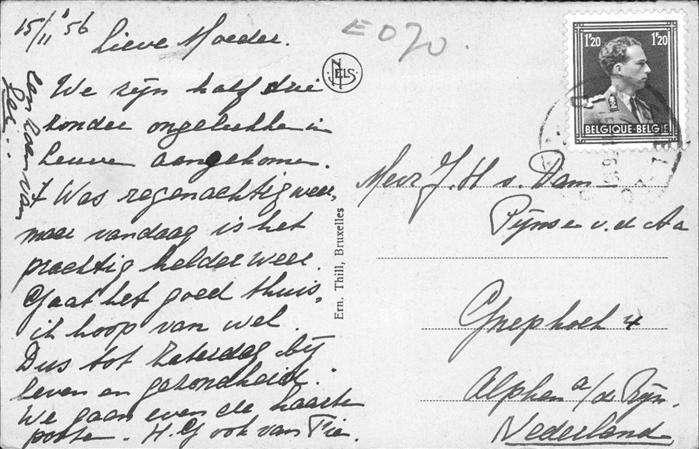 15/11 '56
Lieve Moeder.
We zijn half drie
zonder ongelukken in
Leuve aangekomen.
't Was regenachtig weer,
maar vandaag is het
prachtig helder weer.
Gaat het goed thuis,
ik hoop van wel.
Dus tot Zaterdag bij
leven en gezondheid.
We gaan even de kaart
posten. H. G ook van Pie.
een van
E070.
NELS
Ern. Thill, Bruxelles
1'20 1'20
BELGIQUE-BELGIE
Mevr J. H v. Dam
Pijnse v. d. Aa
Gnephoek 4
Alphen a/d Rijn.
Nederland